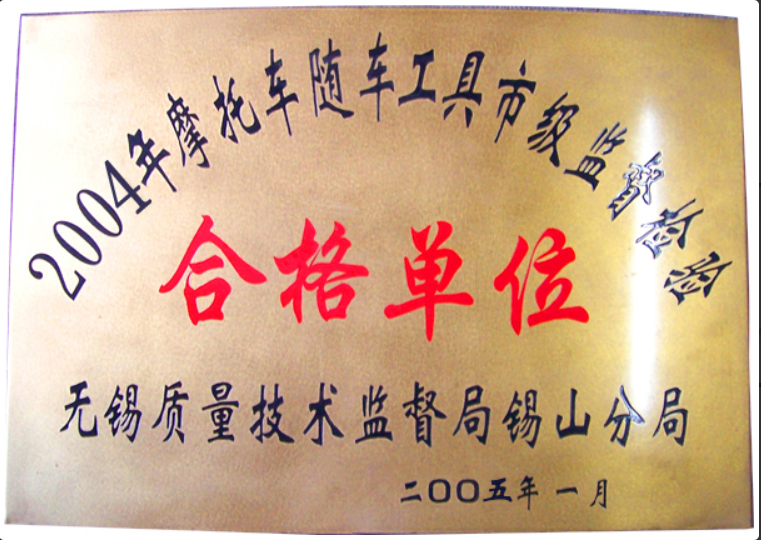 2004年摩托车随车工具市级监督检验
合格单位
无锡质量技术监督局锡山分局
二〇〇五年一月